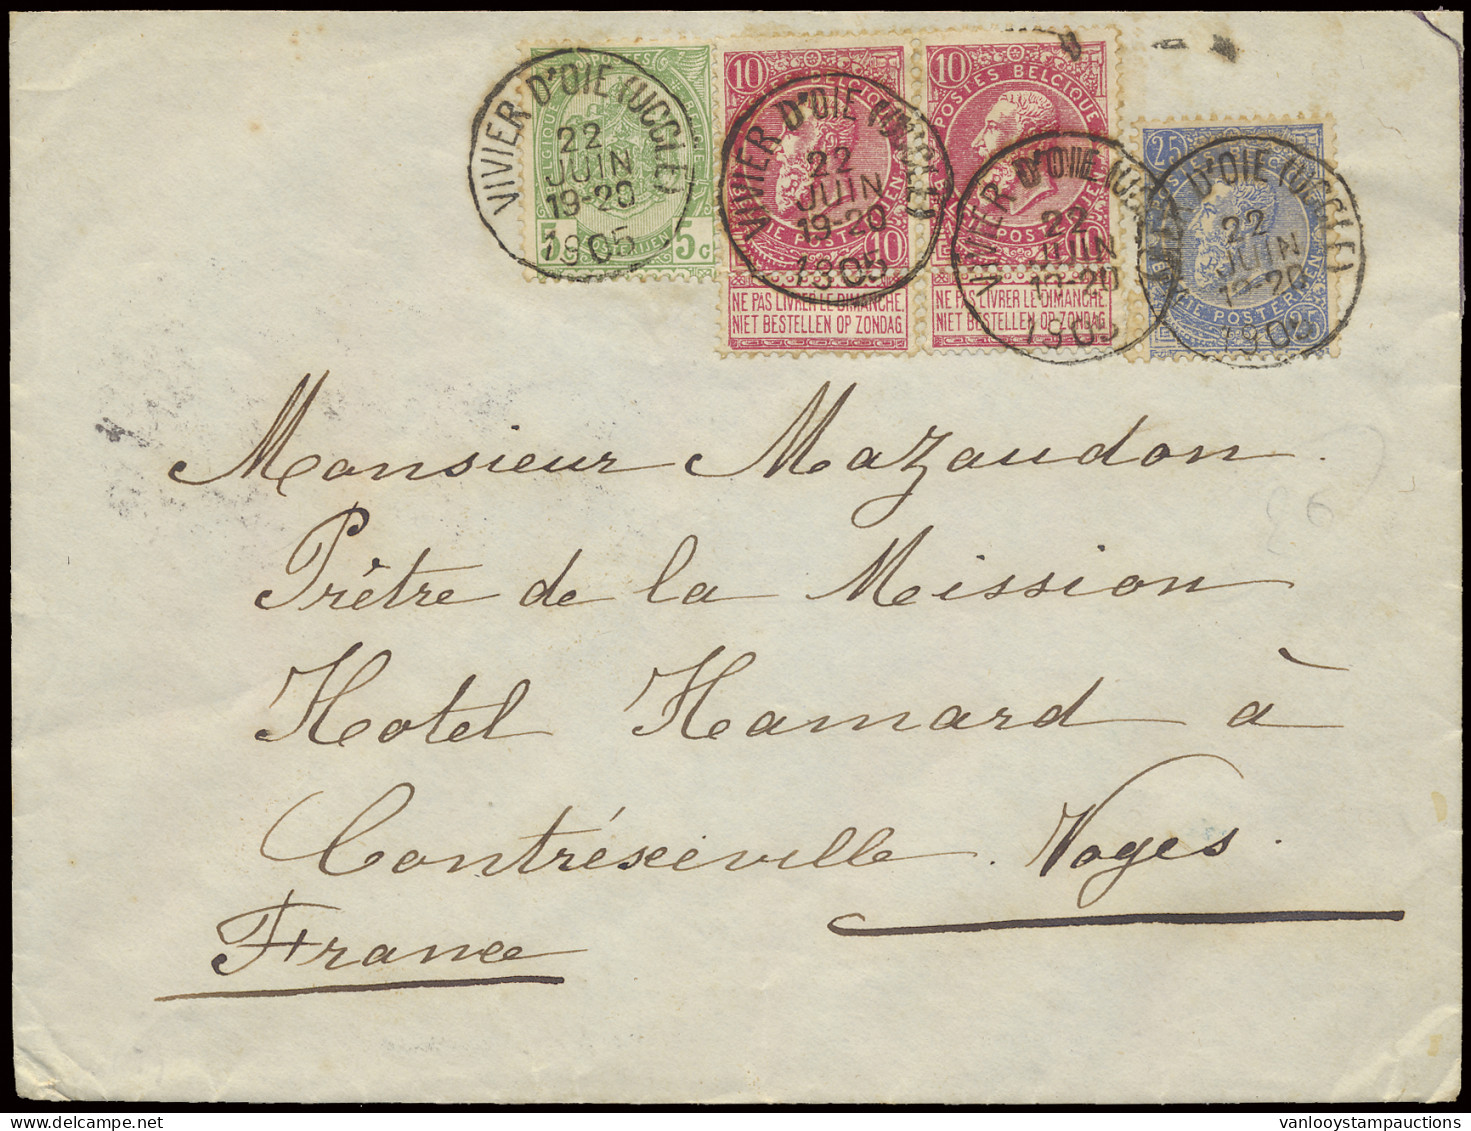 VIVIER D'OIE (UCCLE)
22
JUIN
19-20
1905
5 5c
VIVIER D'OIE (UCCLE)
22
JUIN
19-20
1905
10 BELGIQUE 10
NE PAS LIVRER LE DIMANCHE
NIET BESTELLEN OP ZONDAG.
VIVIER D'OIE (UCCLE)
22
JUIN
19-20
1905
10 POSTES BELGIQUE 10
NE PAS LIVRER LE DIMANCHE
NIET BESTELLEN OP ZONDAG.
D'OIE (UCCLE)
22
JUIN
19-20
1905
25 25
Monsieur Mazaudon.
Prêtre de la Mission
Hotel Hamard à
Contréxéville. Voges.
France
vanlooystampauctions